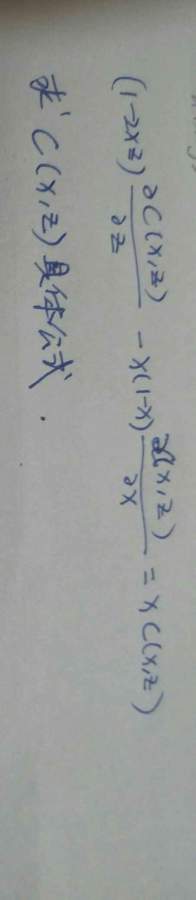 (1-2xz) ∂C(x,z)/∂z - x(1-x) ∂C(x,z)/∂x = x C(x,z)
求 C(x,z) 具体公式.